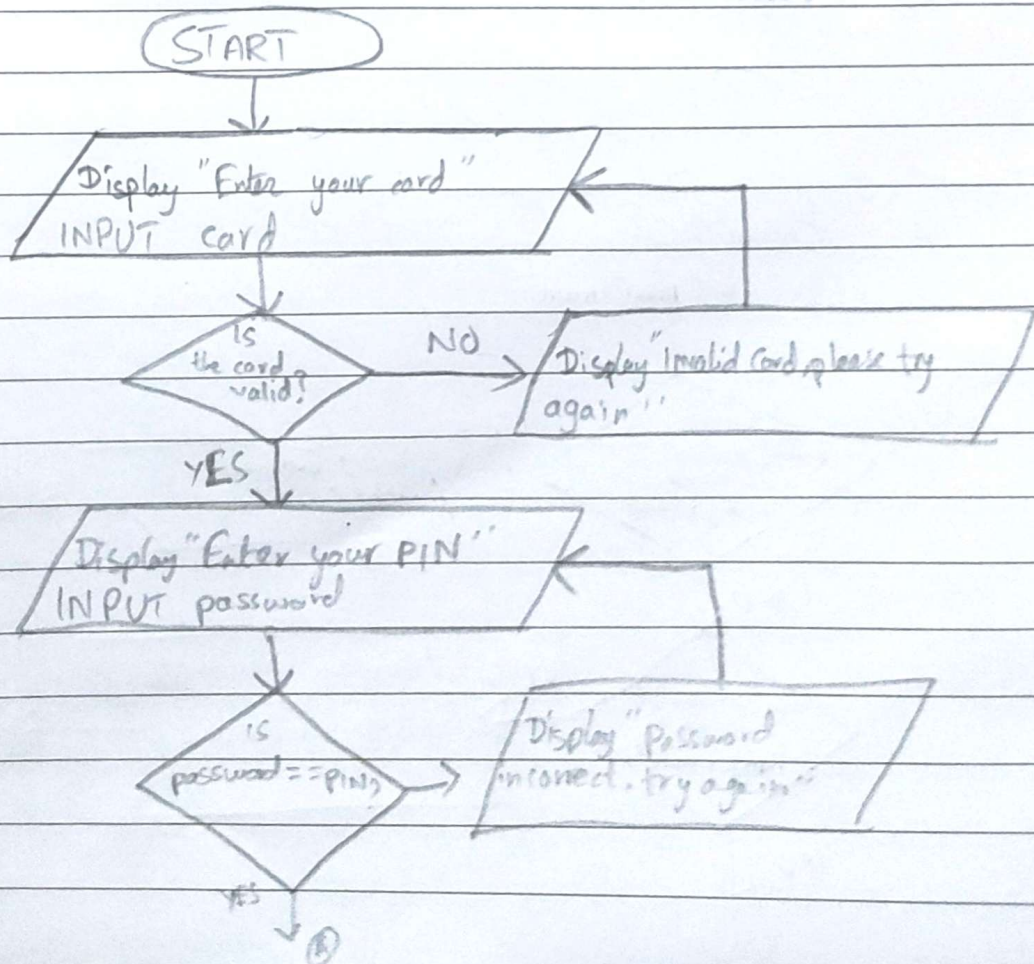 START
Display "Enter your card"
INPUT card
is
the card
valid?
NO
Display "Invalid Card, please try
again"
YES
Display "Enter your PIN"
INPUT password
is
password==PIN?
Display "Password
incorrect. try again"
YES